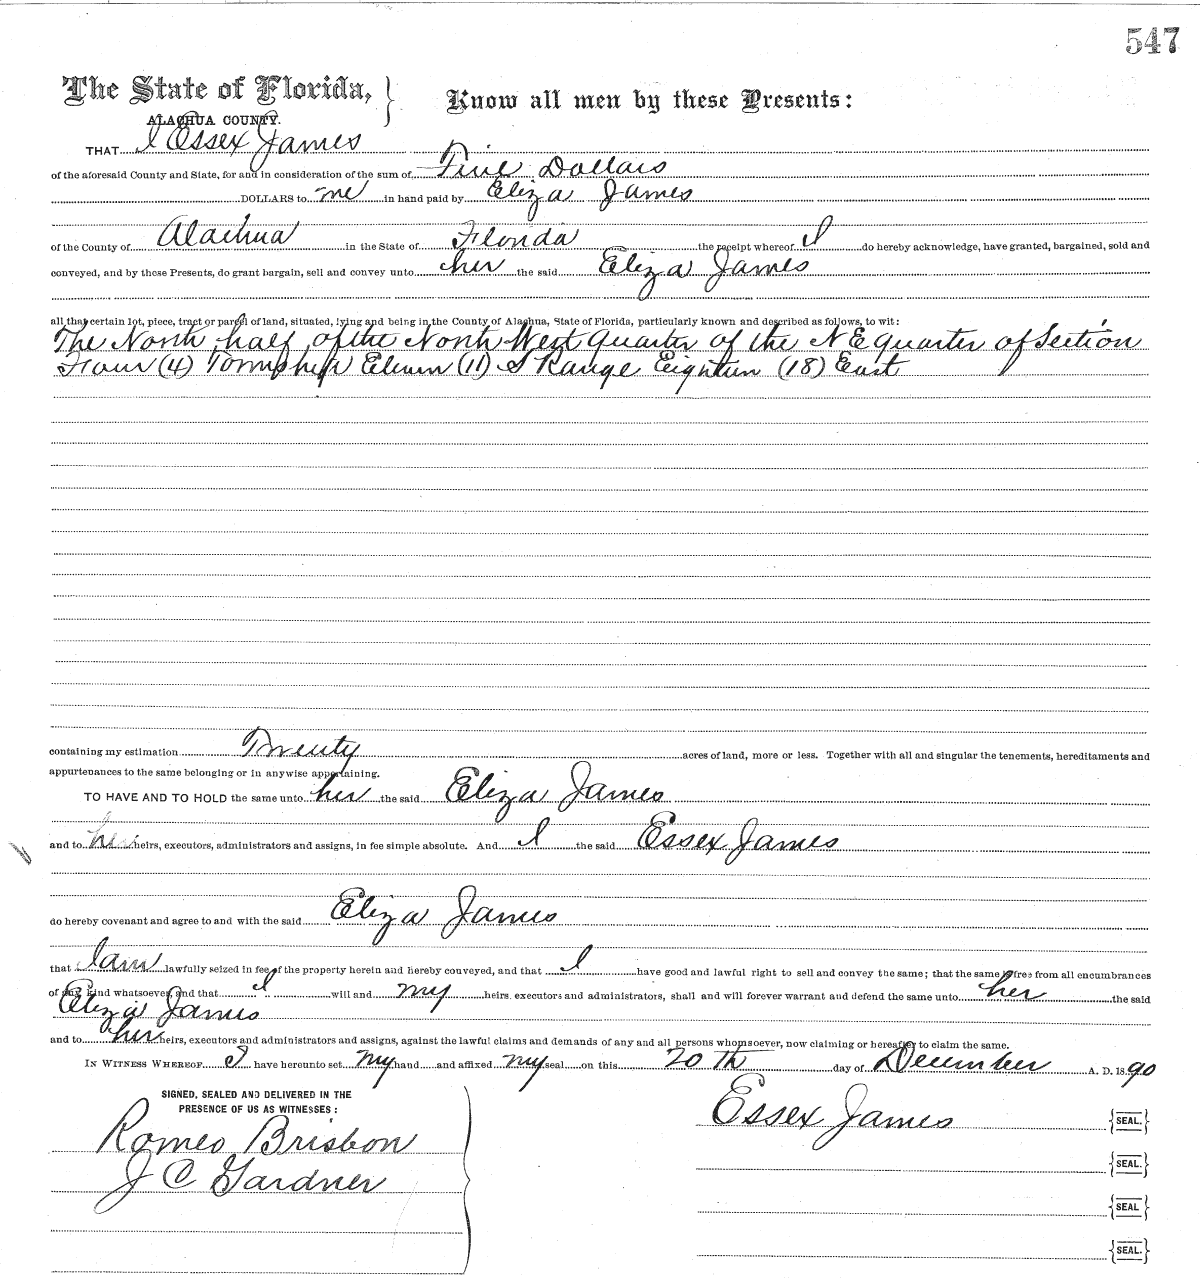 547
The State of Florida, } Know all men by these Presents:
ALACHUA COUNTY.
THAT I Essex James
of the aforesaid County and State, for and in consideration of the sum of Five Dollars
DOLLARS to me in hand paid by Eliza James
of the County of Alachua in the State of Florida the receipt whereof I do hereby acknowledge, have granted, bargained, sold and
conveyed, and by these Presents, do grant bargain, sell and convey unto her the said Eliza James
all that certain lot, piece, tract or parcel of land, situated, lying and being in the County of Alachua, State of Florida, particularly known and described as follows, to wit:
The North half of the North West quarter of the N E quarter of Section
Four (4) Township Eleven (11) S Range Eighteen (18) East
containing my estimation Twenty acres of land, more or less. Together with all and singular the tenements, hereditaments and
appurtenances to the same belonging or in anywise appertaining.
TO HAVE AND TO HOLD the same unto her the said Eliza James
and to her heirs, executors, administrators and assigns, in fee simple absolute. And I the said Essex James
do hereby covenant and agree to and with the said Eliza James
that I am lawfully seized in fee of the property herein and hereby conveyed, and that I have good and lawful right to sell and convey the same; that the same is free from all encumbrances
of any kind whatsoever, and that I will and my heirs executors and administrators, shall and will forever warrant and defend the same unto her the said
Eliza James
and to her heirs, executors and administrators and assigns, against the lawful claims and demands of any and all persons whomsoever, now claiming or hereafter to claim the same.
IN WITNESS WHEREOF I have hereunto set my hand and affixed my seal on this 20th day of December A. D. 1890
SIGNED, SEALED AND DELIVERED IN THE
PRESENCE OF US AS WITNESSES:
Essex James {SEAL.}
Romeo Brisbon
{SEAL.}
J C Gardner
{SEAL}
{SEAL.}